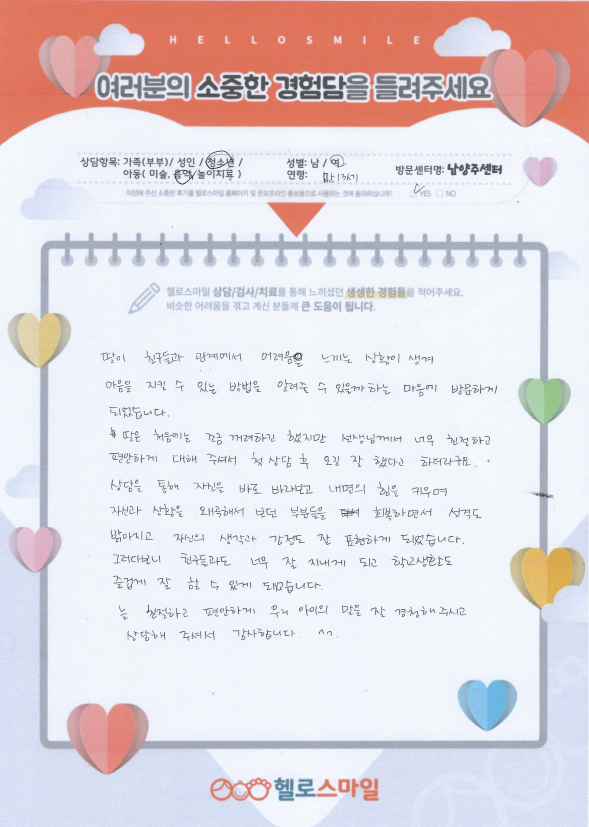 HELLOSMILE
여러분의 소중한 경험담을 들려주세요
상담항목: 가족(부부)/ 성인 / 청소년 / 아동( 미술, 음악/놀이치료 )
성별: 남 / 여
연령: 만 13세
방문센터명: 남양주센터
작성해 주신 소중한 후기를 헬로스마일 홈페이지 및 온오프라인 홍보용으로 사용하는 것에 동의하십니까? ☑ YES ☐ NO
헬로스마일 상담/검사/치료를 통해 느끼셨던 생생한 경험들을 적어주세요.
비슷한 어려움을 겪고 계신 분들께 큰 도움이 됩니다.
딸이 친구들과 관계에서 어려움을 느끼는 상황이 생겨
마음을 지킬 수 있는 방법을 알려줄 수 있을까하는 마음에 방문하게
되었습니다.
딸은 처음에는 조금 꺼려하긴 했지만 선생님께서 너무 친절하고
편안하게 대해 주셔서 첫 상담 후 오길 잘 했다고 하더라구요.
상담을 통해 자신을 바로 바라보고 내면의 힘을 키우며
자신과 상황을 왜곡해서 보던 부분들을 회복하면서 성격도
밝아지고 자신의 생각과 감정도 잘 표현하게 되었습니다.
그러다보니 친구들과도 너무 잘 지내게 되고 학교생활도
즐겁게 잘 할 수 있게 되었습니다.
늘 친절하고 편안하게 우리 아이의 말을 잘 경청해 주시고
상담해 주셔서 감사합니다. ^^.
헬로스마일